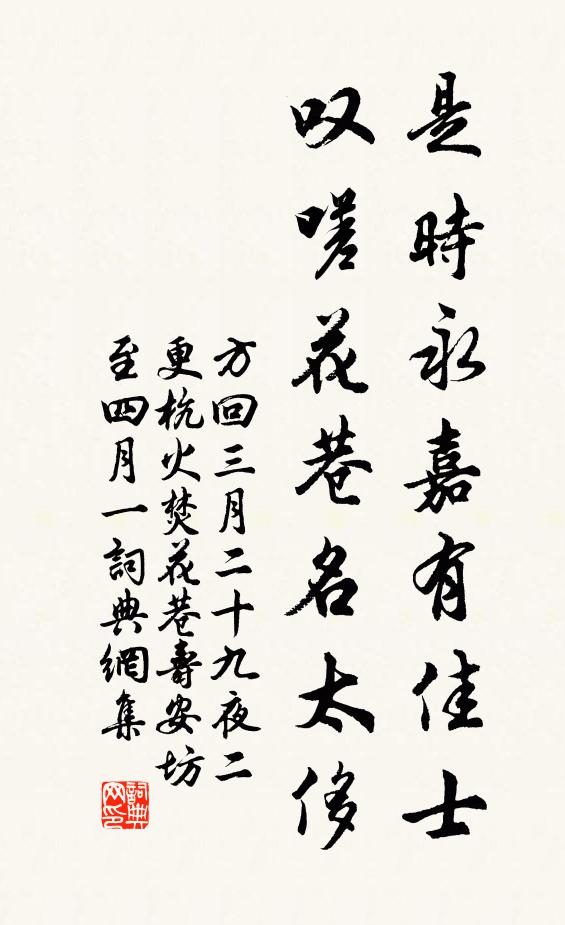 是時永嘉有佳士
叹嗟花巷名太侈
方回三月二十九夜二
更杭火焚花巷壽安坊
至四月一詞典網集
詞典
网印